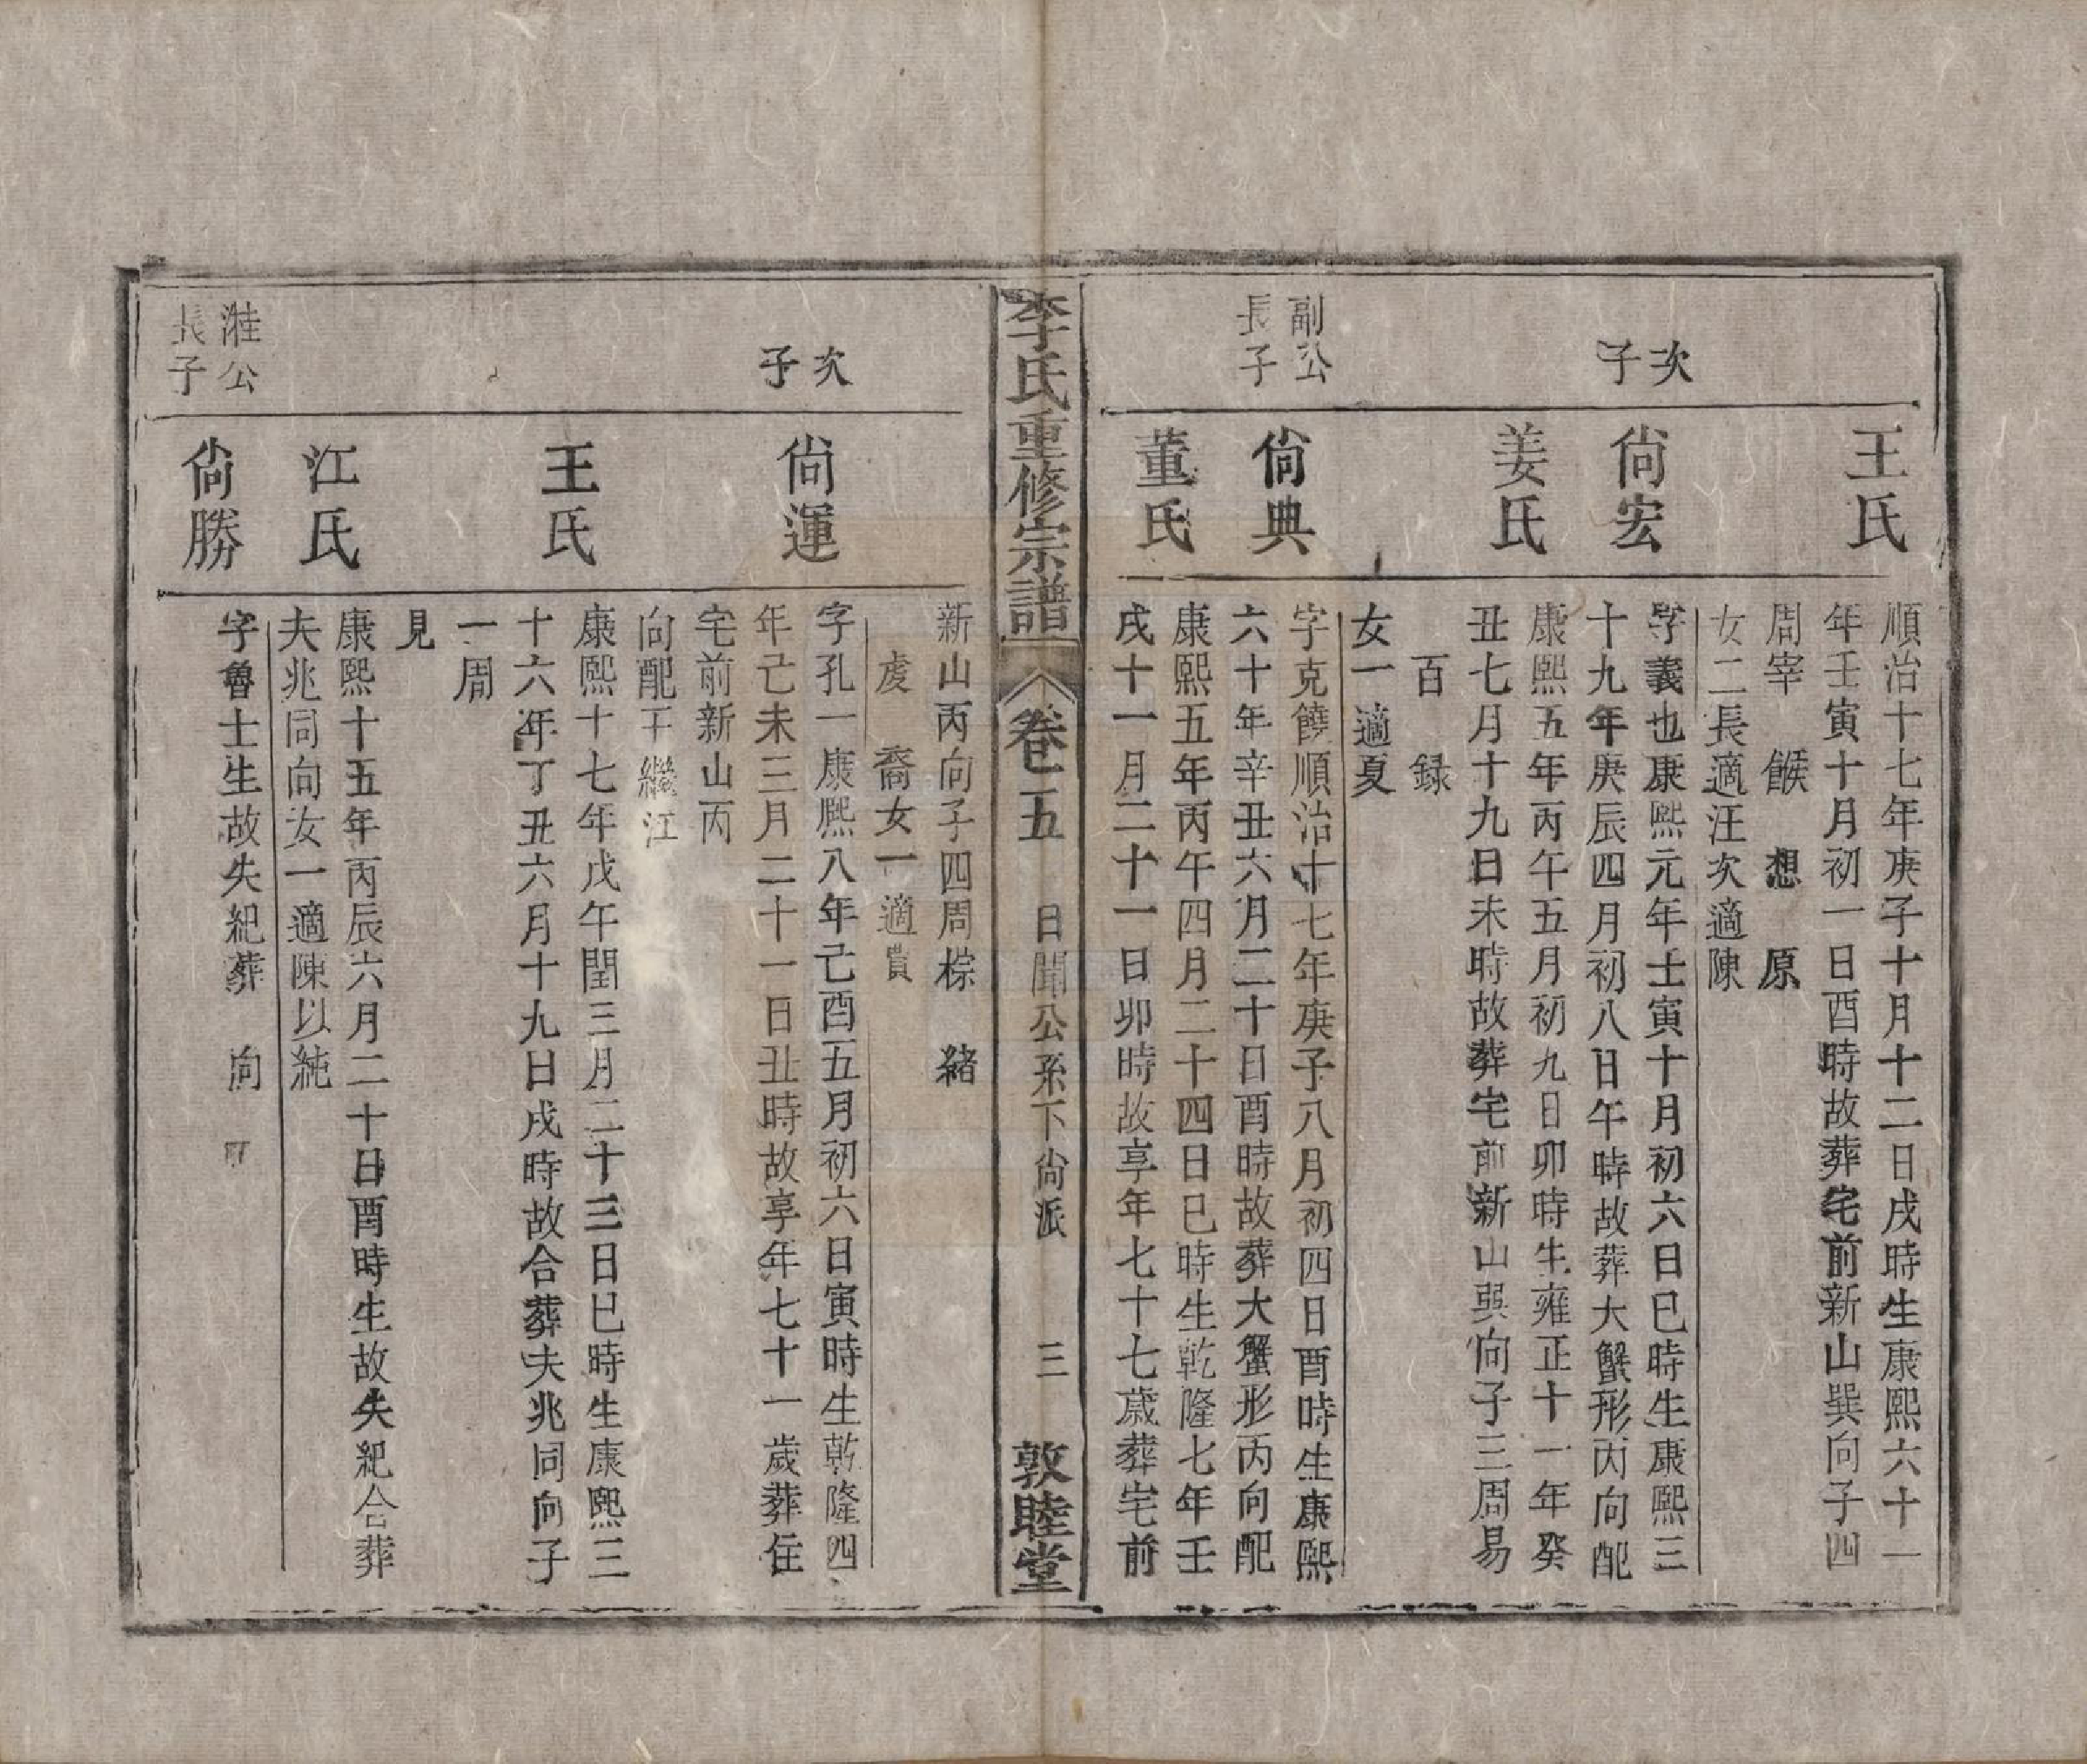 王氏
順治十七年庚子十月十二日戌時生康熙六十一
年壬寅十月初一日酉時故葬宅前新山巽向子四
周宰　餱　想　原
女二長適汪次適陳
次子
尙宏
字義也康熙元年壬寅十月初六日巳時生康熙三
十九年庚辰四月初八日午時故葬大蟹形丙向配
姜氏
康熙五年丙午五月初九日卯時生雍正十一年癸
丑七月十九日未時故葬宅前新山巽向子三周易
百　録
女一適夏
副公長子
尙典
字克饒順治十七年庚子八月初四日酉時生康熙
六十年辛丑六月二十日酉時故葬大蟹形丙向配
董氏
康熙五年丙午四月二十四日巳時生乾隆七年壬
戌十一月二十一日卯時故享年七十七歲葬宅前
李氏重修宗譜　卷五　日聞公系下尙派　三　敦睦堂
新山丙向子四周棕　緒
虔　裔女一適
次子
尙運
字孔一康熙八年己酉五月初六日寅時生乾隆四
年己未三月二十一日丑時故享年七十一歲葬住
宅前新山丙
向配王繼江
王氏
康熙十七年戊午閏三月二十三日巳時生康熙三
十六年丁丑六月十九日戌時故合葬夫兆同向子
一周
見
江氏
康熙十五年丙辰六月二十日酉時生故失紀合葬
夫兆同向女一適陳以純
淮公長子
尙勝
字魯士生故失紀葬　向